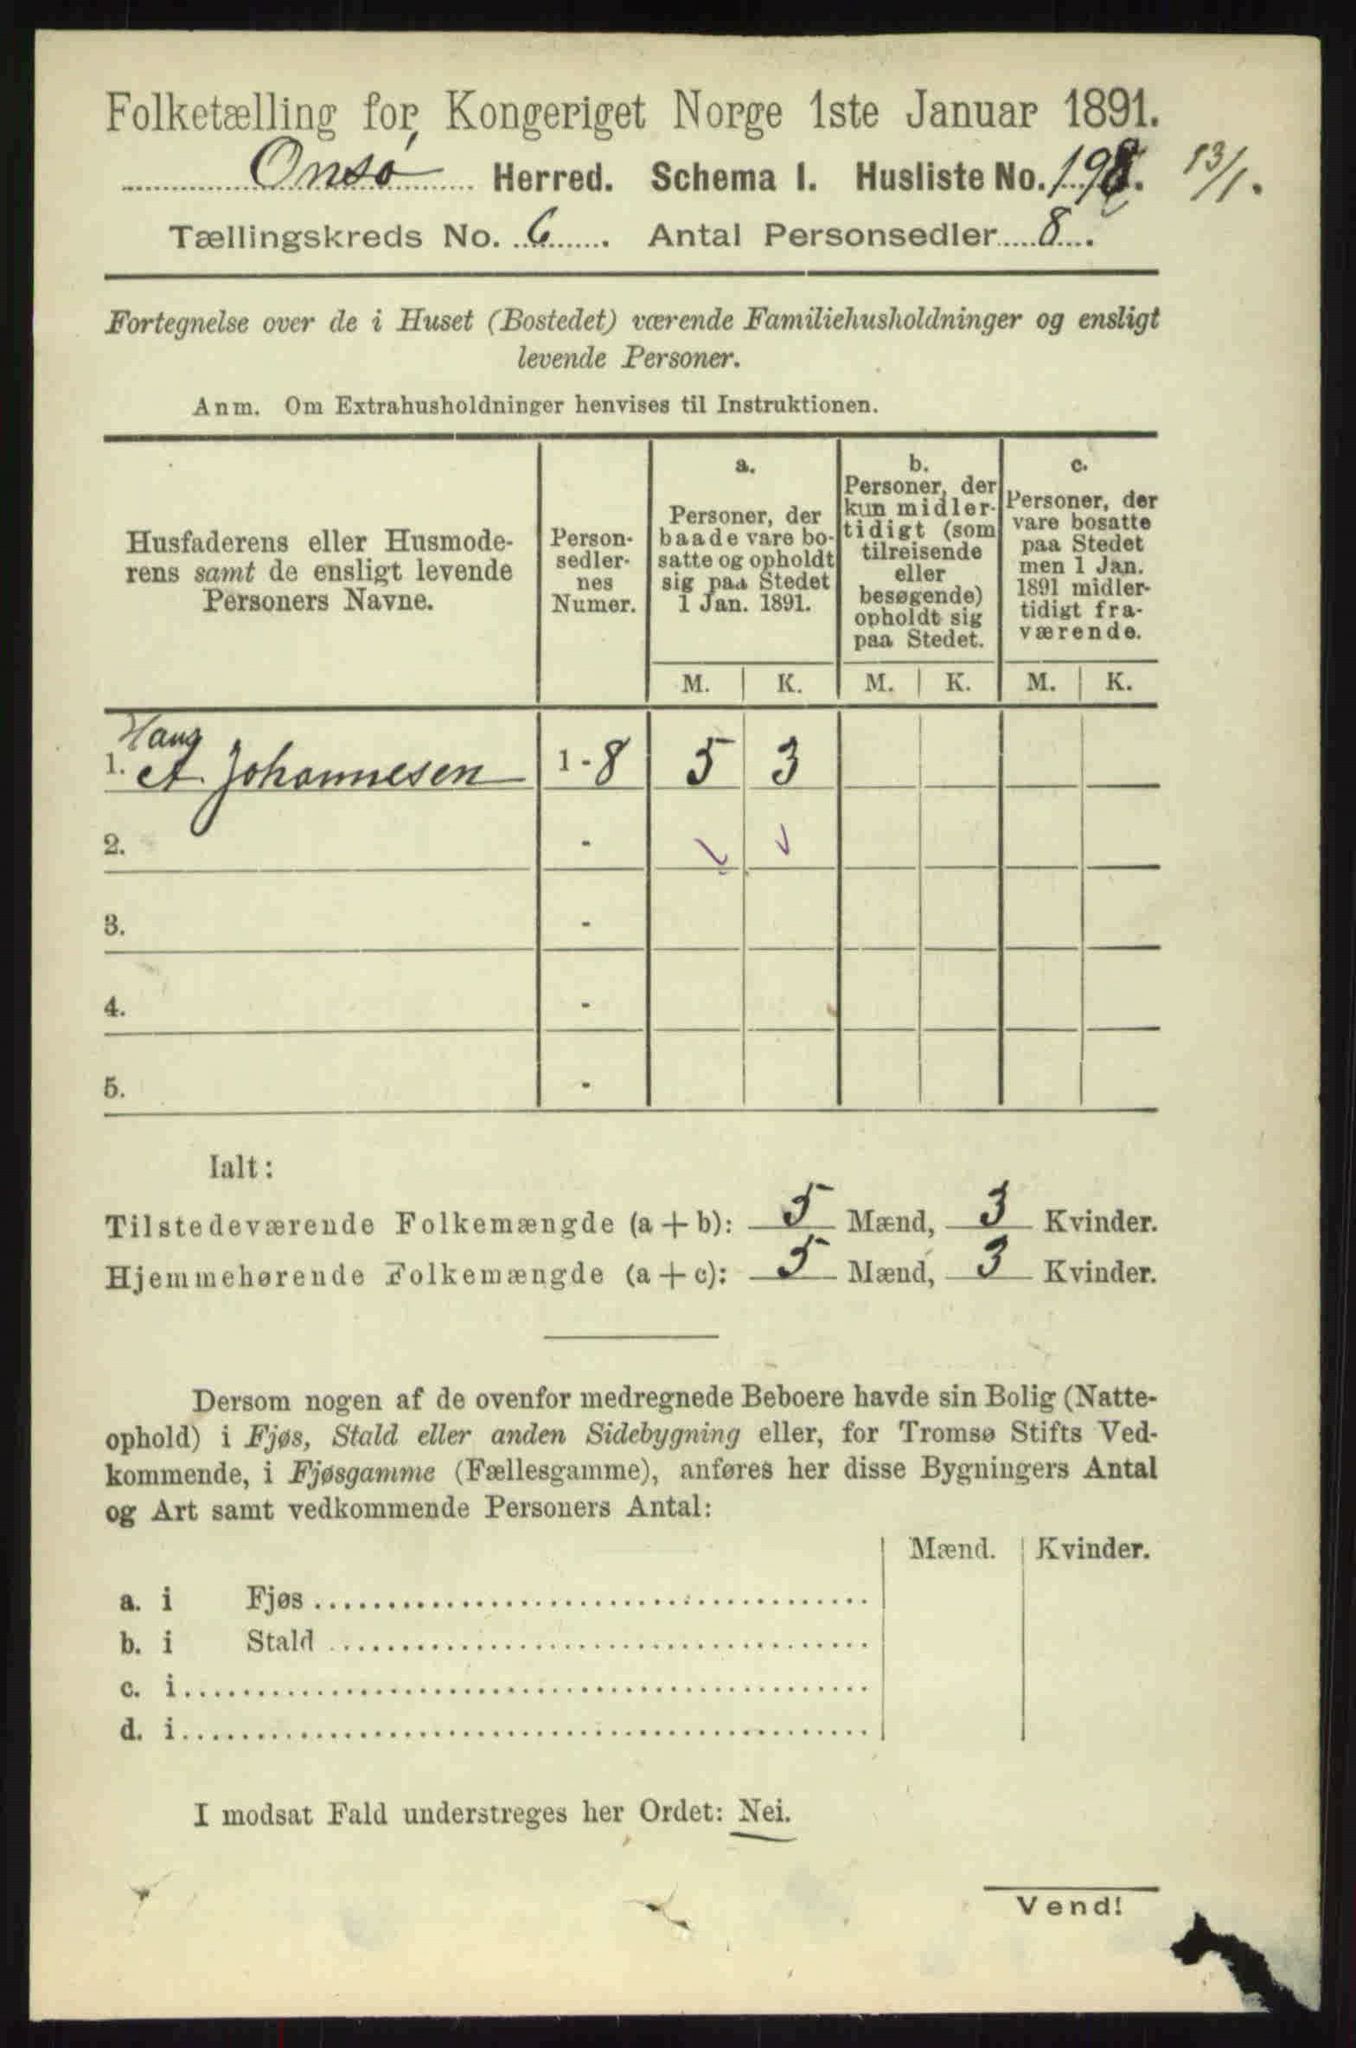 Folketælling for Kongeriget Norge 1ste Januar 1891.
Onsø Herred. Schema I. Husliste No. 198. 13/1.
Tællingskreds No. 6. Antal Personsedler 8.
Fortegnelse over de i Huset (Bostedet) værende Familiehusholdninger og ensligt
levende Personer.
Anm. Om Extrahusholdninger henvises til Instruktionen.
Husfaderens eller Husmode-
rens samt de ensligt levende
Personers Navne.
Person-
sedler-
nes
Numer.
a.
Personer, der
baade vare bo-
satte og opholdt
sig paa Stedet
1 Jan. 1891.
b.
Personer, der
kun midler-
tidigt (som
tilreisende
eller
besøgende)
opholdt sig
paa Stedet.
c.
Personer, der
vare bosatte
paa Stedet
men 1 Jan.
1891 midler-
tidigt fra-
værende.
M. K. M. K. M. K.
1. A. Johannesen 1 - 8 5 3
2. -
3. -
4. -
5. -
Ialt:
Tilstedeværende Folkemængde (a + b): 5 Mænd, 3 Kvinder.
Hjemmehørende Folkemængde (a + c): 5 Mænd, 3 Kvinder.
Dersom nogen af de ovenfor medregnede Beboere havde sin Bolig (Natte-
ophold) i Fjøs, Stald eller anden Sidebygning eller, for Tromsø Stifts Ved-
kommende, i Fjøsgamme (Fællesgamme), anføres her disse Bygningers Antal
og Art samt vedkommende Personers Antal:
Mænd. Kvinder.
a. i Fjøs
b. i Stald
c. i
d. i
I modsat Fald understreges her Ordet: Nei.
Vend!